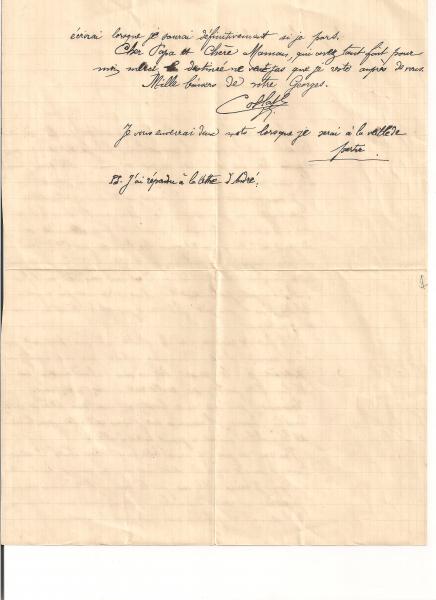 écrirai lorsque je saurai définitivement si je pars.
Cher Papa et Chère Maman, qui avez tant fait pour
moi, merci la destinée ne veut pas que je reste auprès de vous.
Mille baisers de votre Georges.
Je vous enverrai deux mots lorsque je serai à la veille de
partir.
PS. J'ai répondu à la lettre d'André.